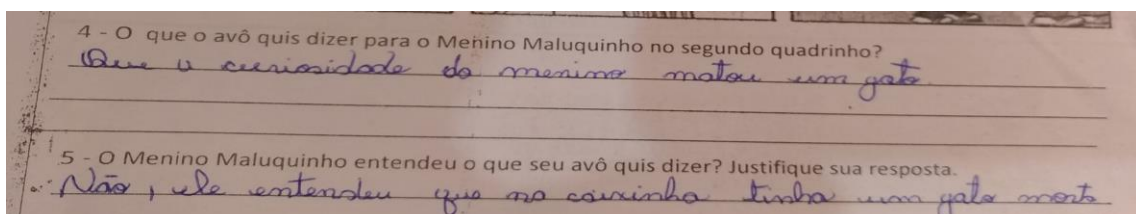 4 - O que o avô quis dizer para o Menino Maluquinho no segundo quadrinho?
Que a curiosidade do menino matou um gato
5 - O Menino Maluquinho entendeu o que seu avô quis dizer? Justifique sua resposta.
Não, ele entendeu que na caixinha tinha um gato morto